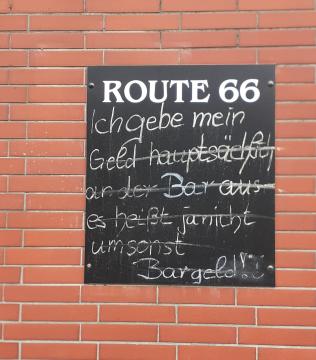 ROUTE 66
Ich gebe mein
Geld hauptsächlich
an der Bar aus
es heißt ja nicht
umsonst
Bargeld!!